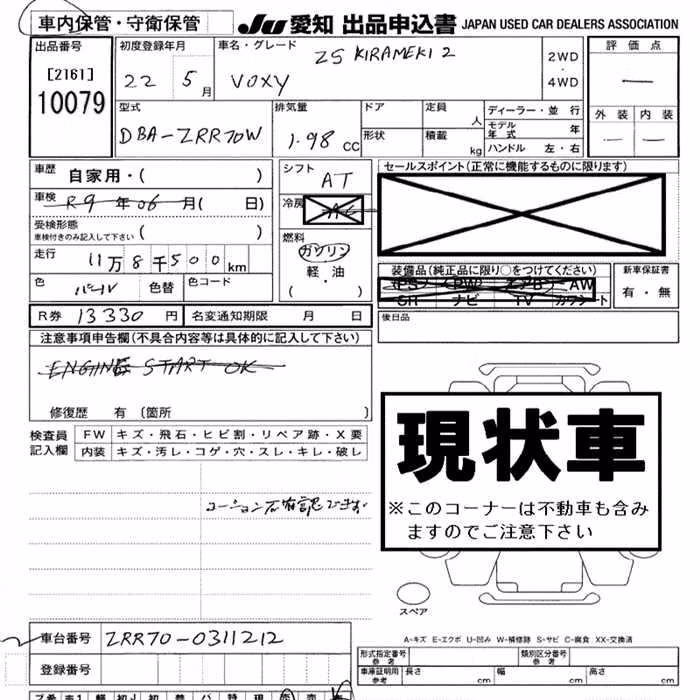 車内保管・守衛保管
JU 愛知 出品申込書 JAPAN USED CAR DEALERS ASSOCIATION
出品番号
[2161]
10079
初度登録年月
22 5月
車名・グレード
ZS KIRAMEKI 2
VOXY
2WD
・
4WD
評価点
—
外装 内装
— —
型式
DBA-ZRR70W
排気量
1.98 cc
ドア
形状
定員 人
積載 kg
ディーラー・並行
モデル年式 年
ハンドル 左・右
車歴 自家用・( )
車検 R9年06月( 日)
受検形態
車検付きのみ記入して下さい ( )
走行 11万8千500km
色 パール 色替
色コード
シフト
AT
冷房
AC
燃料
ガソリン
軽・油
( ・ )
セールスポイント(正常に機能するものに限ります)
装備品(純正品に限り○をつけてください)
PS PW エアB AW
SR ナビ TV カワシート
新車保証書
有・無
R券 13330 円 名変通知期限 月 日
後日品
注意事項申告欄(不具合内容等は具体的に記入して下さい)
ENGINE START OK
修復歴 有 (箇所 )
検査員
記入欄
FW キズ・飛石・ヒビ割・リペア跡・X要
内装 キズ・汚レ・コゲ・穴・スレ・キレ・破レ
コーション不確認できず
現状車
※このコーナーは不動車も含み
ますのでご注意下さい
スペア
A-キズ E-エクボ U-凹み W-補修跡 S-サビ C-腐食 XX-交換済
車台番号 ZRR70-0311212
登録番号
形式指定番号
参考
類別区分番号
参考
車庫証明用
参考
長さ cm 幅 cm 高さ cm